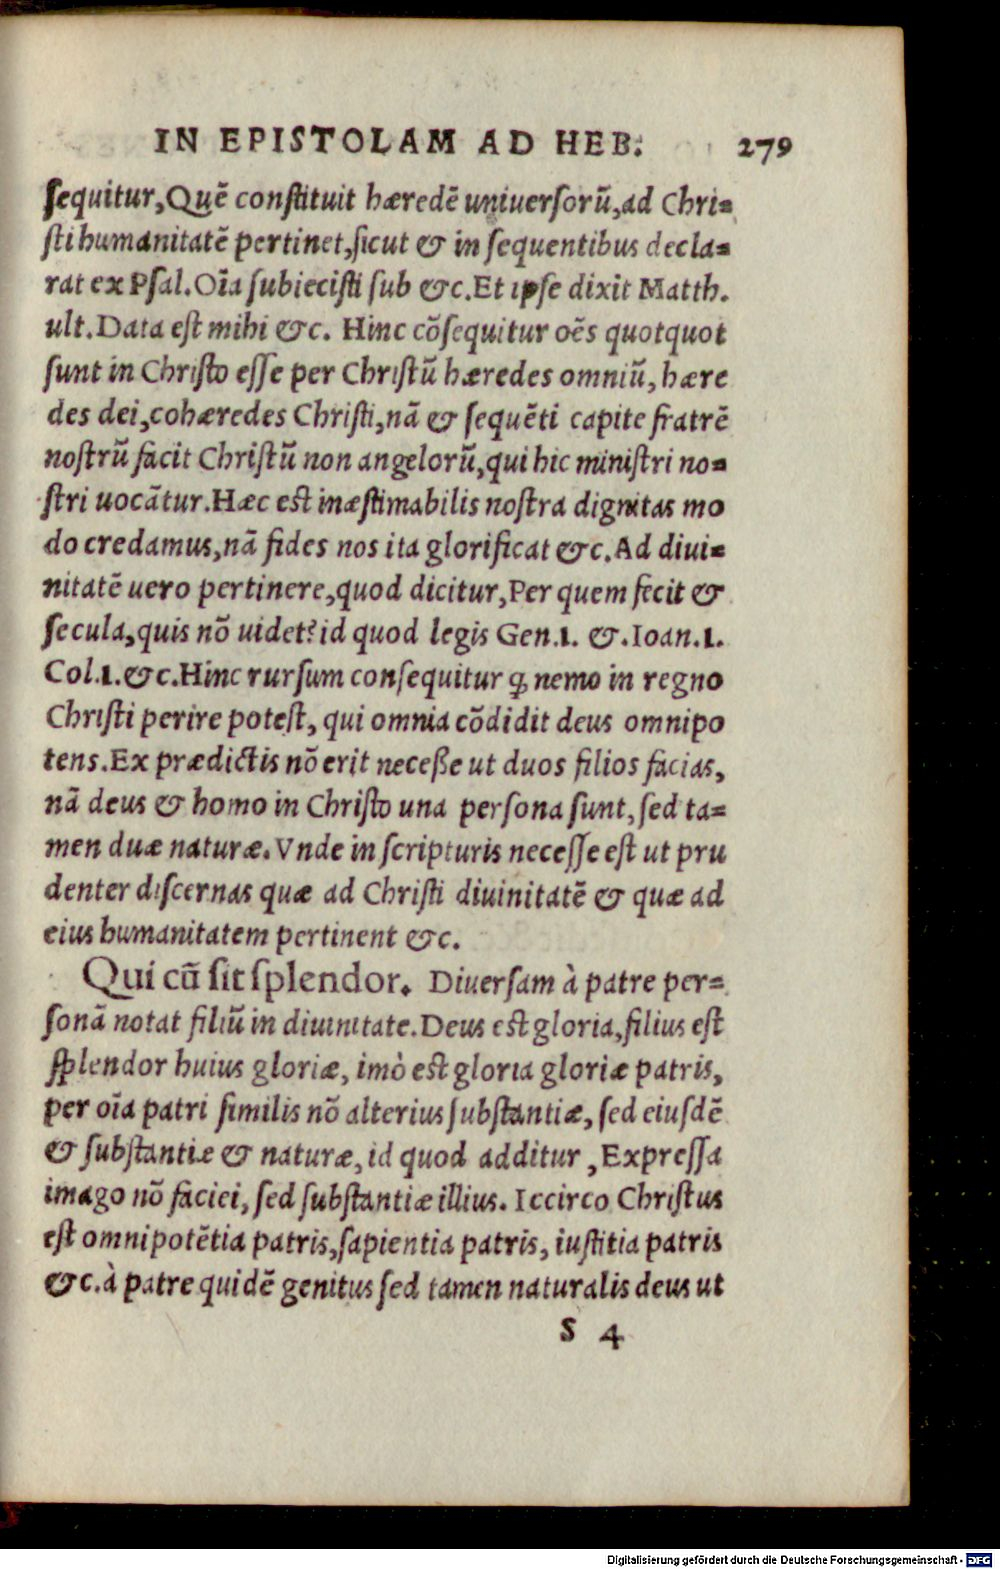 IN EPISTOLAM AD HEB. 279
sequitur,Quē constituit hæredē uniuersorū,ad Chri=
sti humanitatē pertinet,sicut & in sequentibus decla=
rat ex Psal.Oīa subiecisti sub &c.Et ipse dixit Matth.
ult.Data est mihi &c. Hinc cōsequitur oēs quotquot
sunt in Christo esse per Christū hæredes omniū, hære
des dei,cohæredes Christi,nā & sequēti capite fratrē
nostrū facit Christū non angelorū,qui hic ministri no=
stri uocātur.Hæc est inæstimabilis nostra dignitas mo
do credamus,nā fides nos ita glorificat &c.Ad diui=
nitatē uero pertinere,quod dicitur,Per quem fecit &
secula,quis nō uidet?id quod legis Gen.1. &.Ioan.1.
Col.1.&c.Hinc rursum consequitur ꝙ nemo in regno
Christi perire potest, qui omnia cōdidit deus omnipo
tens.Ex prædictis nō erit neceße ut duos filios facias,
nā deus & homo in Christo una persona sunt, sed ta=
men duæ naturæ.Vnde in scripturis necesse est ut pru
denter discernas quæ ad Christi diuinitatē & quæ ad
eius humanitatem pertinent &c.
Qui cū sit splendor. Diuersam à patre per=
sonā notat filiū in diuinitate.Deus est gloria,filius est
splendor huius gloriæ, imò est gloria gloriæ patris,
per oīa patri similis nō alterius substantiæ, sed eiusdē
& substantiæ & naturæ, id quod additur , Expressa
imago nō faciei, sed substantiæ illius. Iccirco Christus
est omnipotētia patris,sapientia patris, iustitia patris
&c.à patre quidē genitus sed tamen naturalis deus ut
S 4
Digitalisierung gefördert durch die Deutsche Forschungsgemeinschaft - DFG